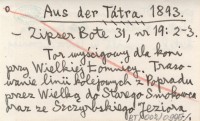 Aus der Tátra. 1893.
- Zipser Bote 31, nr 19: 2-3.
Tor wyścigowy dla koni
przy Wielkiej Łomnicy. Traso-
wanie linii kolejowych z Popradu
przez Wielką do Starego Smokowca
oraz ze Szczyrbskiego Jeziora